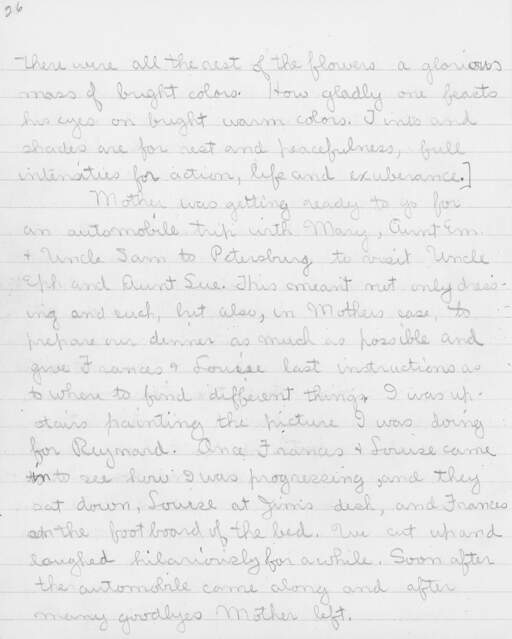 26
there were all the rest of the flowers a glorious
mass of bright colors. How gladly one feasts
his eyes on bright warm colors. Tints and
shades are for rest and peacefulness, full
intensities for action, life and exuberance.]
Mother was getting ready to go for
an automobile trip with Mary, Aunt Em
& Uncle Sam to Petersburg to visit Uncle
Eph and Aunt Sue. This meant not only dress-
ing and such, but also, in Mothers case, to
prepare our dinner as much as possible and
give Frances & Louise last instructions as
to where to find different things. I was up-
stairs painting the picture I was doing
for Reynard. Once Frances & Louise came
in to see how I was progressing, and they
sat down, Louise at Jim's desk, and Frances
on the footboard of the bed. We cut up and
laughed hilariously for a while. Soon after
the automobile came along and after
many goodbyes Mother left.